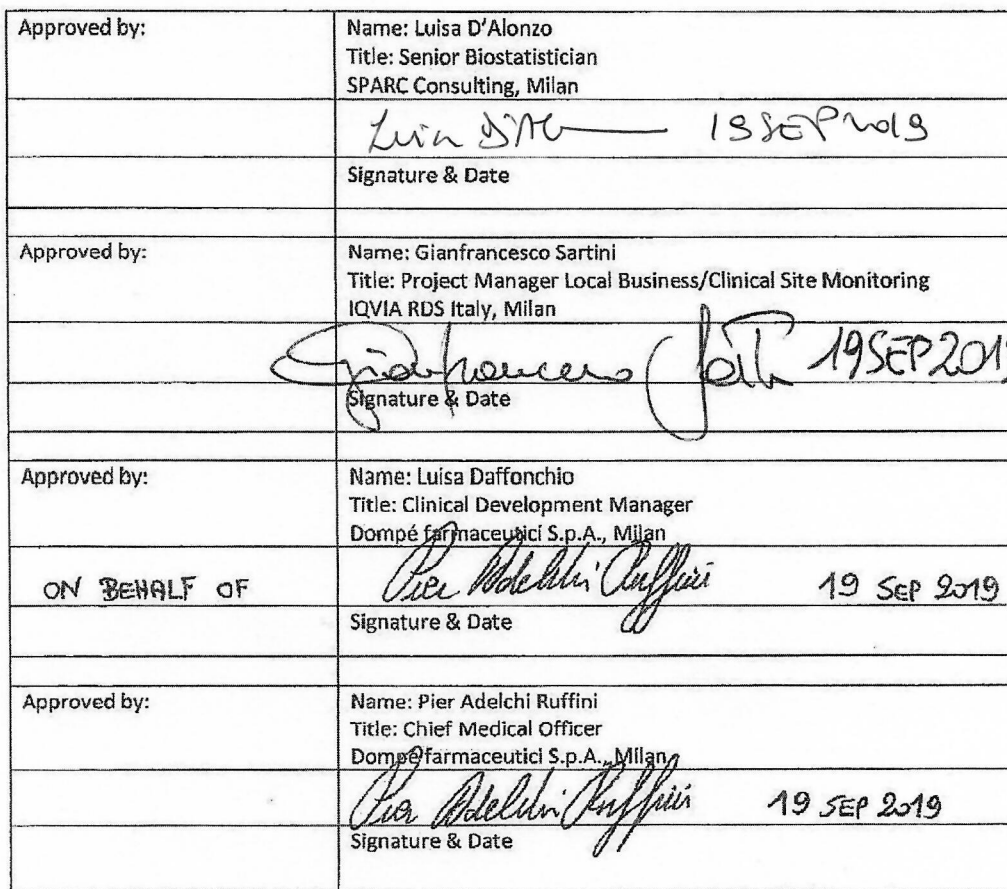 Approved by:
Name: Luisa D'Alonzo
Title: Senior Biostatistician
SPARC Consulting, Milan
Luisa D'Al 19SEP2019
Signature & Date
Approved by:
Name: Gianfrancesco Sartini
Title: Project Manager Local Business/Clinical Site Monitoring
IQVIA RDS Italy, Milan
Gianfrancesco 19SEP2019
Signature & Date
Approved by:
Name: Luisa Daffonchio
Title: Clinical Development Manager
Dompé farmaceutici S.p.A., Milan
ON BEHALF OF Pier Adelchi Ruffini 19 SEP 2019
Signature & Date
Approved by:
Name: Pier Adelchi Ruffini
Title: Chief Medical Officer
Dompé farmaceutici S.p.A., Milan
Pier Adelchi Ruffini 19 SEP 2019
Signature & Date